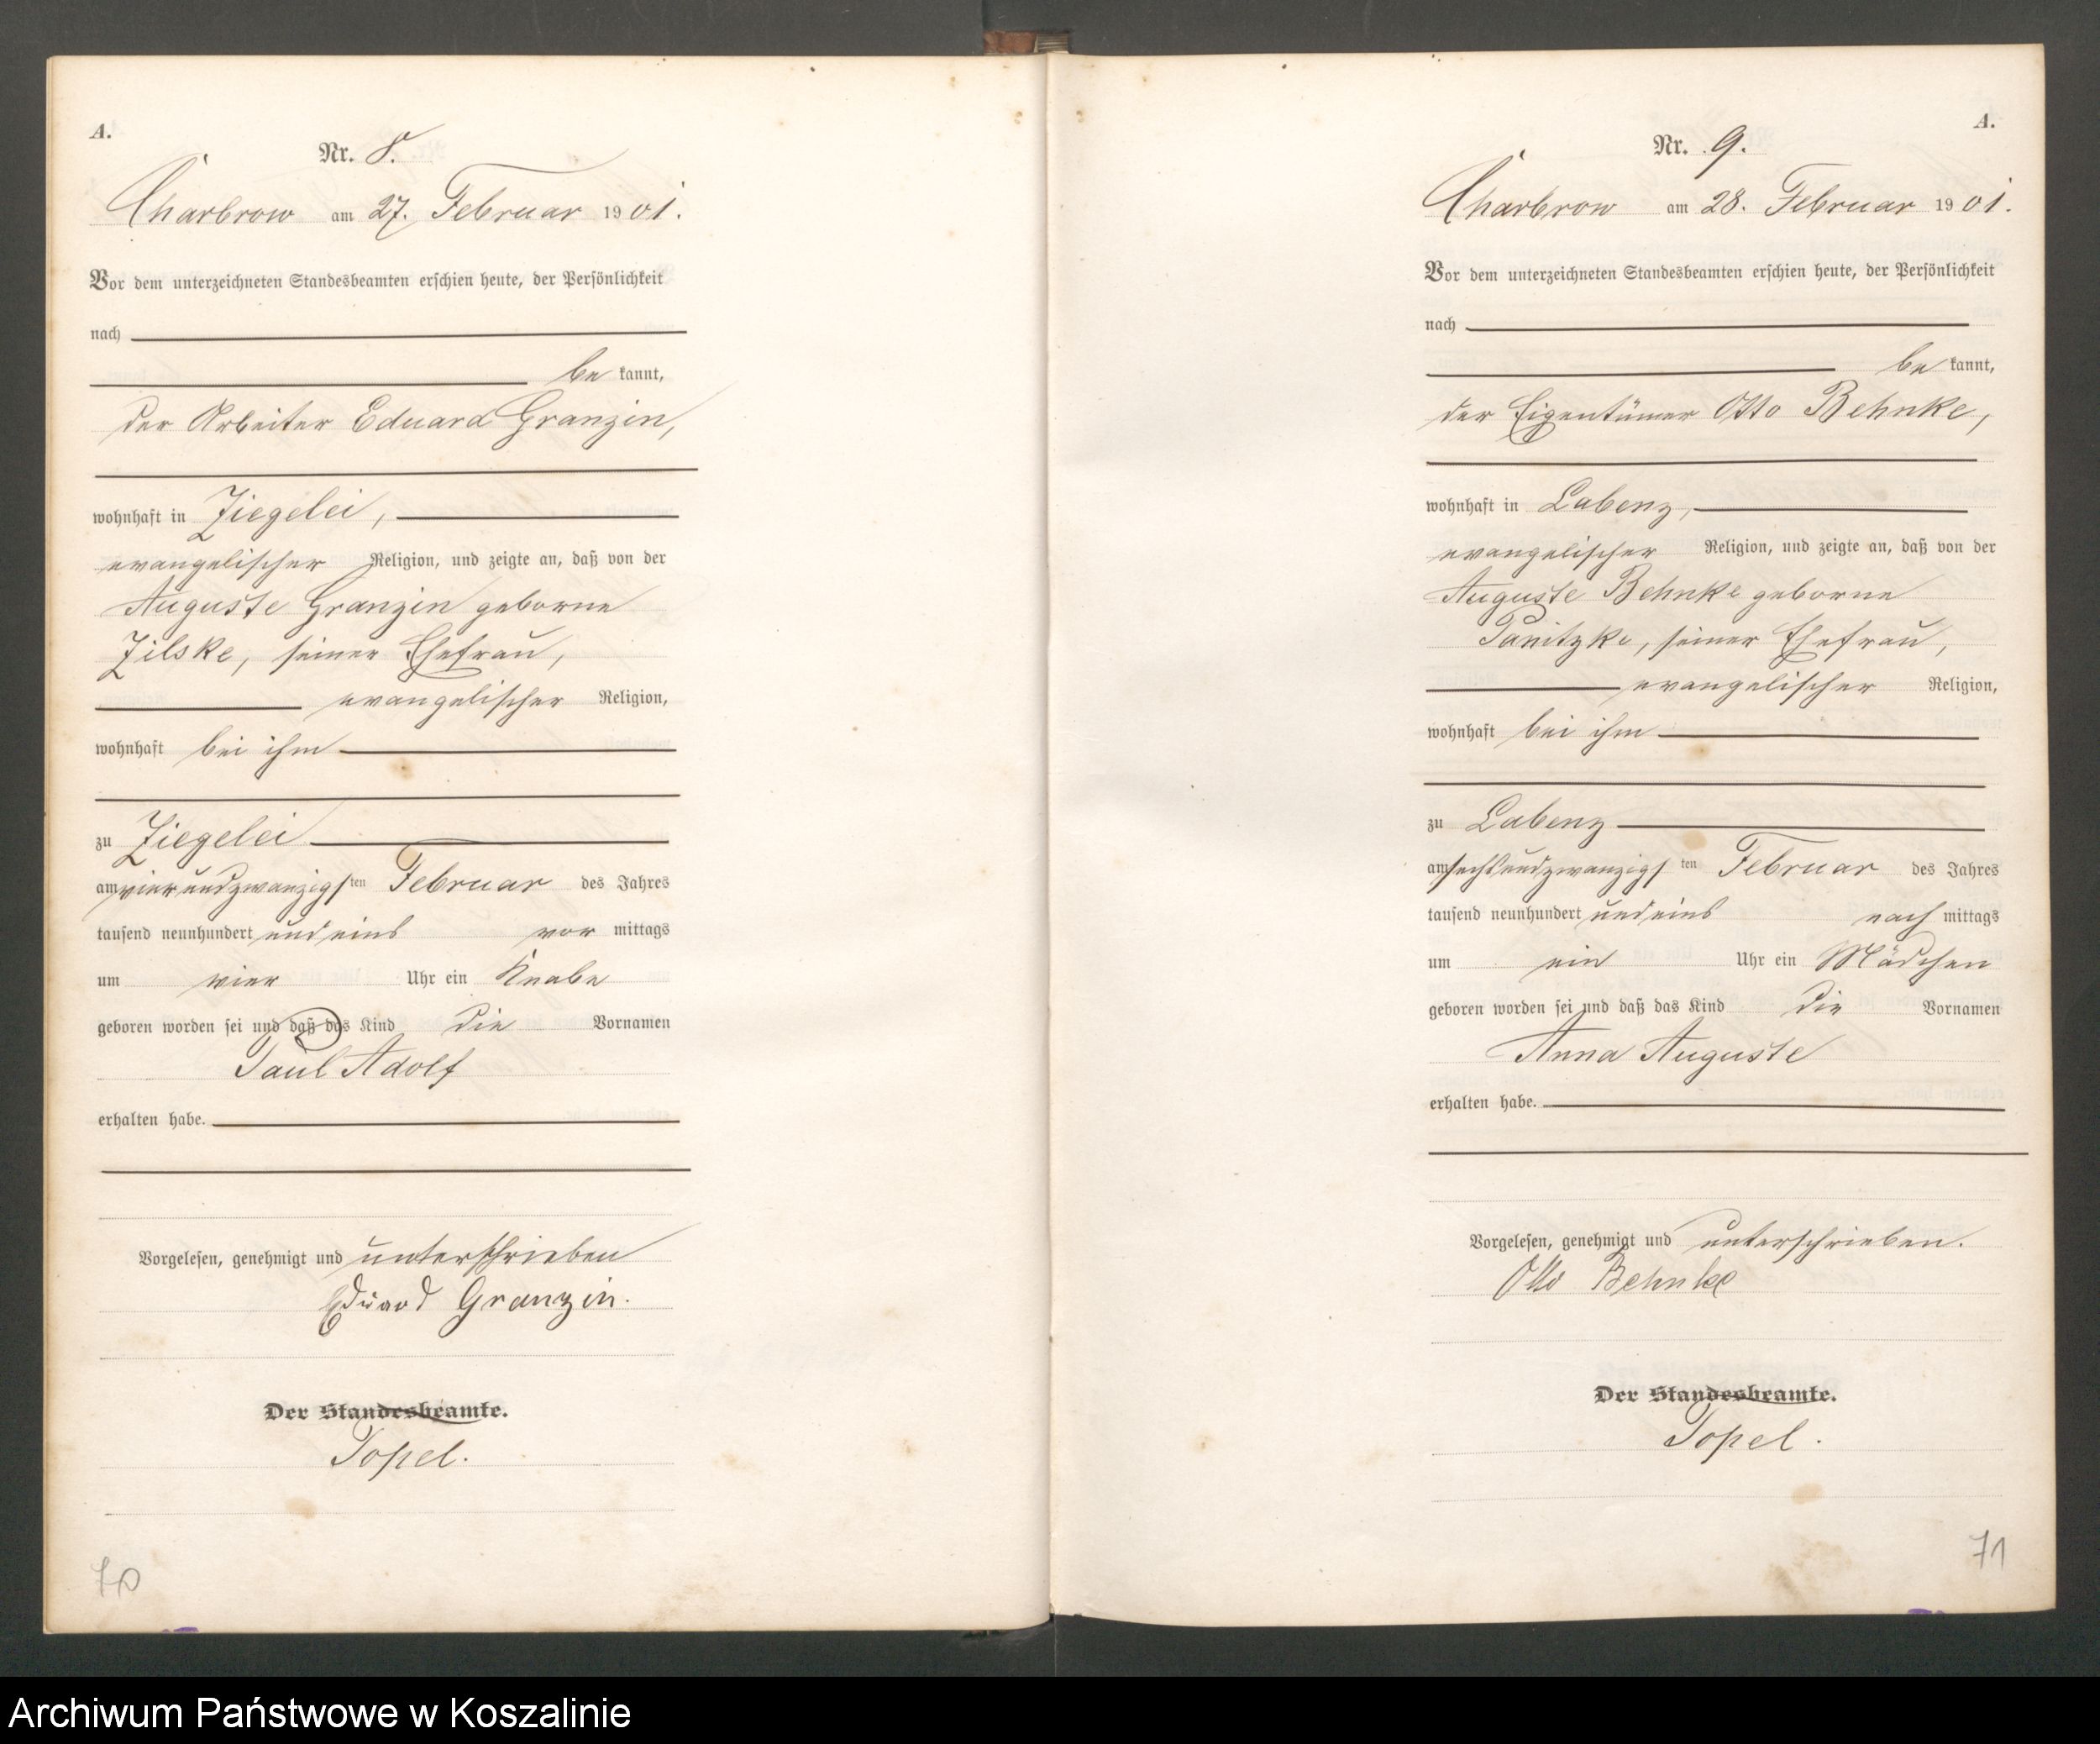 A.
Nr. 8.
Charbrow am 27. Februar 1901.
Vor dem unterzeichneten Standesbeamten erschien heute, der Persönlichkeit
nach
be kannt,
der Arbeiter Eduard Granzin,
wohnhaft in Ziegelei,
evangelischer Religion, und zeigte an, daß von der
Auguste Granzin geborne
Zilske, seiner Ehefrau,
evangelischer Religion,
wohnhaft bei ihm
zu Ziegelei
am vierundzwanzigsten Februar des Jahres
tausend neunhundert und eins vor mittags
um vier Uhr ein Knabe
geboren worden sei und daß das Kind die Vornamen
Paul Adolf
erhalten habe.
Vorgelesen, genehmigt und unterschrieben
Eduard Granzin.
Der Standesbeamte.
Topel.
70
A.
Nr. 9.
Charbrow am 28. Februar 1901.
Vor dem unterzeichneten Standesbeamten erschien heute, der Persönlichkeit
nach
be kannt,
der Eigentümer Otto Behnke,
wohnhaft in Labenz,
evangelischer Religion, und zeigte an, daß von der
Auguste Behnke geborne
Panitzke, seiner Ehefrau,
evangelischer Religion,
wohnhaft bei ihm
zu Labenz
am sechsundzwanzigsten Februar des Jahres
tausend neunhundert und eins nach mittags
um ein Uhr ein Mädchen
geboren worden sei und daß das Kind die Vornamen
Anna Auguste
erhalten habe.
Vorgelesen, genehmigt und unterschrieben.
Otto Behnke
Der Standesbeamte.
Topel.
71
Archiwum Państwowe w Koszalinie